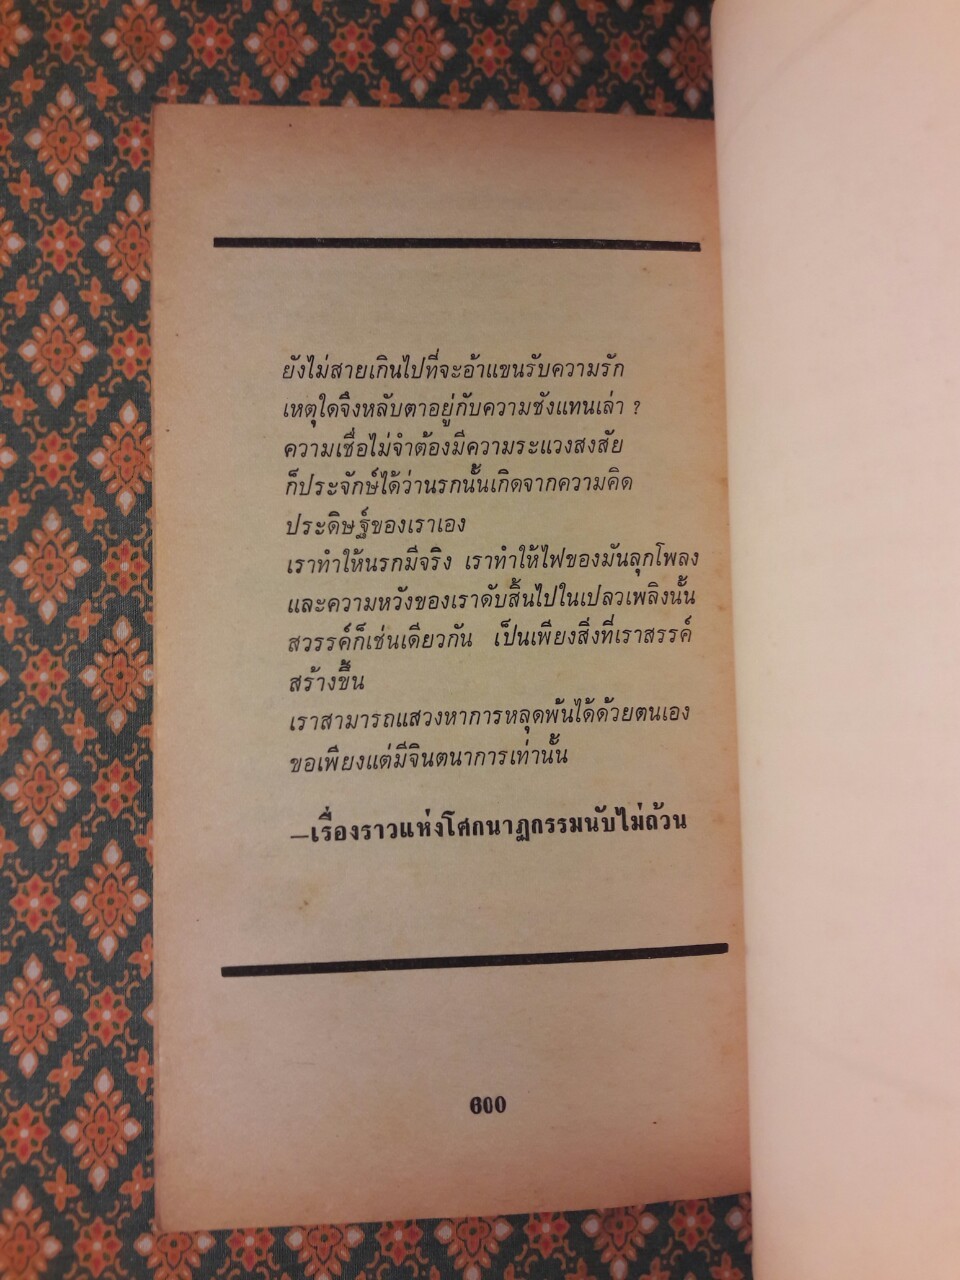 ยังไม่สายเกินไปที่จะอ้าแขนรับความรัก
เหตุใดจึงหลับตาอยู่กับความชังแทนเล่า ?
ความเชื่อไม่จำต้องมีความระแวงสงสัย
ก็ประจักษ์ได้ว่านรกนั้นเกิดจากความคิด
ประดิษฐ์ของเราเอง
เราทำให้นรกมีจริง เราทำให้ไฟของมันลุกโพลง
และความหวังของเราดับสิ้นไปในเปลวเพลิงนั้น
สวรรค์ก็เช่นเดียวกัน เป็นเพียงสิ่งที่เราสรรค์
สร้างขึ้น
เราสามารถแสวงหาการหลุดพ้นได้ด้วยตนเอง
ขอเพียงแต่มีจินตนาการเท่านั้น
—เรื่องราวแห่งโศกนาฏกรรมนับไม่ถ้วน
600